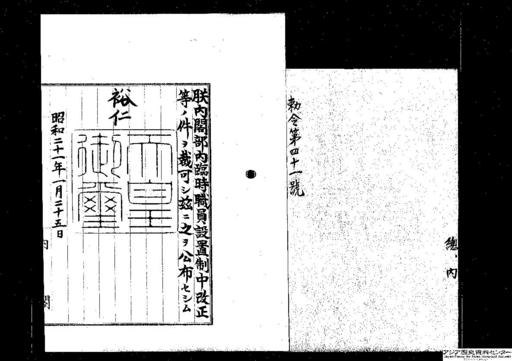 勅令第四十一號
總、內
朕內閣部內臨時職員設置制中改正
等ノ件ヲ裁可シ茲ニ之ヲ公布セシム
裕仁
天皇御璽
昭和二十一年一月二十五日
內閣
アジア歴史資料センター